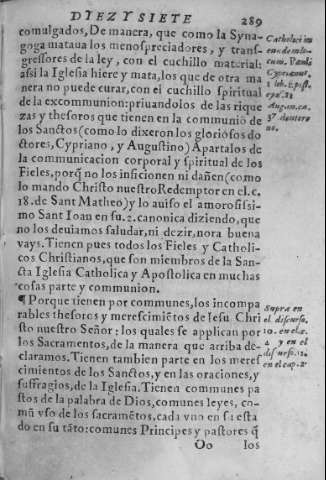 DIEZ Y SIETE 289
comulgados, De manera, que como la Syna-
goga mataua los menospreciadores, y trans-
gressores de la ley, con el cuchillo material:
assi la Iglesia hiere y mata, los que de otra ma
nera no puede curar, con el cuchillo spiritual
de la excommunion: priuandolos de las rique
zas y thesoros que tienen en la communiõ de
los Sanctos (como lo dixeron los gloriosos do
ctores, Cypriano, y Augustino) Apartalos de
la communicacion corporal y spiritual de los
Fieles, porq̃ no los inficionen ni dañen (como
lo mando Christo nuestro Redemptor en el.c.
18. de Sant Matheo) y lo auiso el amorosissi
mo Sant Ioan en su.2. canonica diziendo, que
no los deuiamos saludar, ni dezir, nora buena
vays. Tienen pues todos los Fieles y Catholi-
cos Christianos, que son miembros de la San-
cta Iglesia Catholica y Apostolica en muchas
cosas parte y communion.
¶ Porque tienen por communes, los incompa
rables thesoros y merescimiẽtos de Iesu Chri
sto nuestro Señor; los quales se applican por
los Sacramentos, de la manera que arriba de-
claramos. Tienen tambien parte en los meres
cimientos de los Sanctos, y en las oraciones, y
suffragios, de la Iglesia. Tienen communes pa
stos de la palabra de Dios, comunes leyes, co-
mũ vso de los sacramẽtos, cada vno en su esta
do en su tãto: comunes Principes y pastores q̃
Oo los
Cypriano.
Supra en
el discurso.
10. en el.c.
2 y en el
discurso. 12.
en el cap. 2